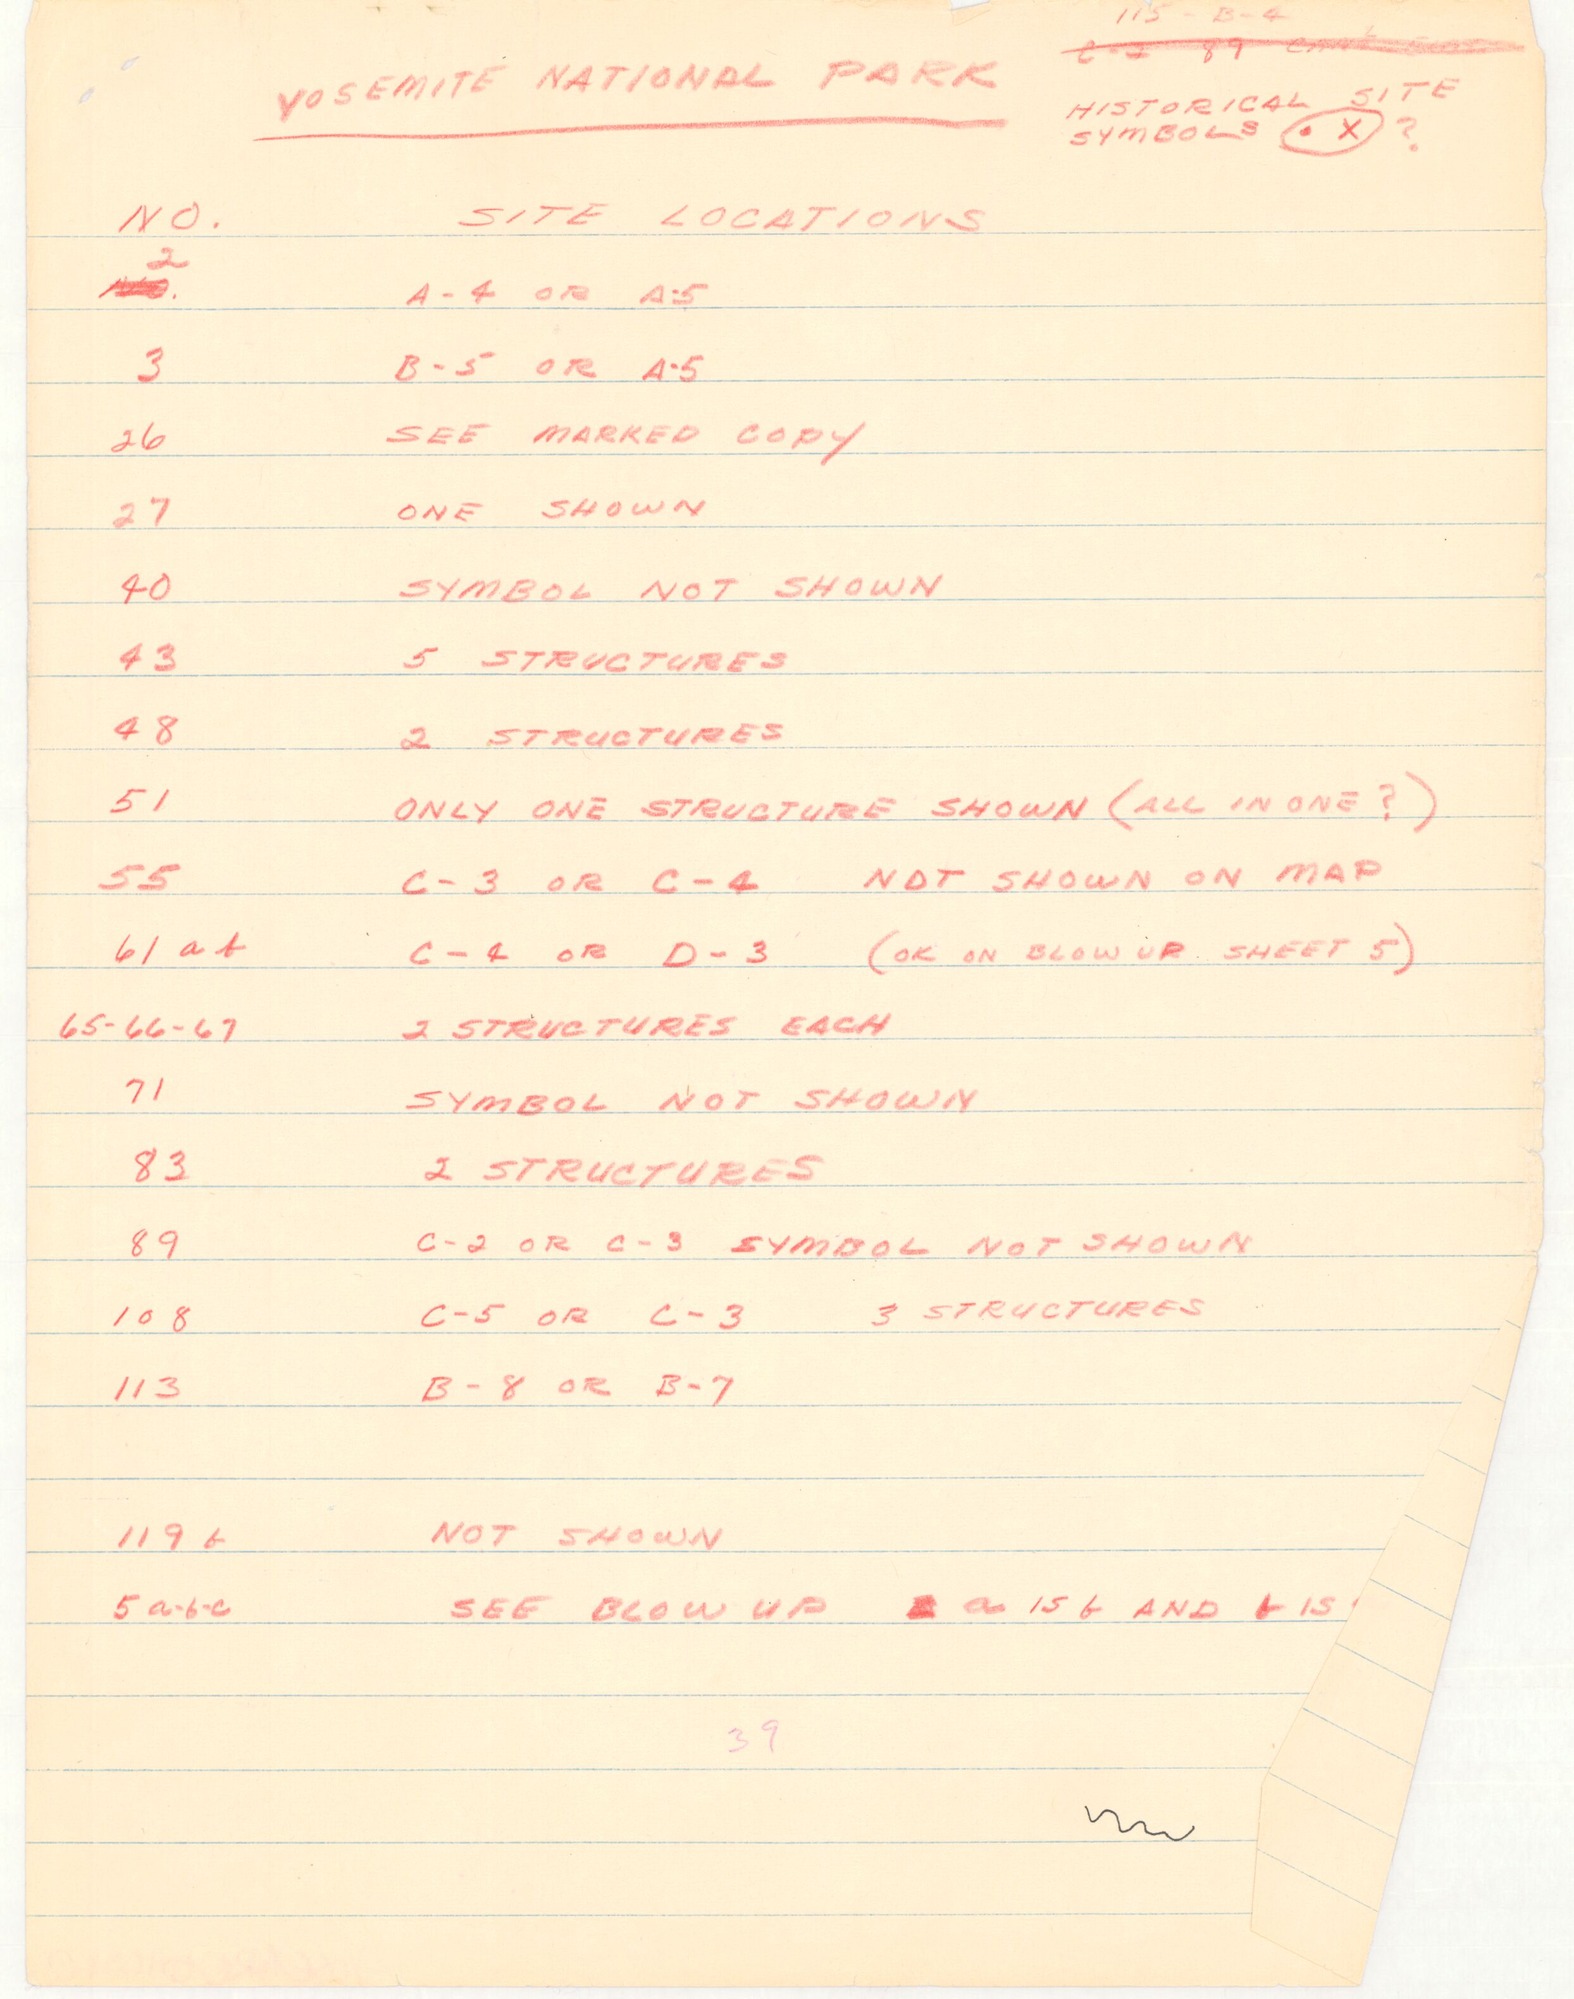 115 - B-4
YOSEMITE NATIONAL PARK
HISTORICAL SITE
SYMBOLS • X ?
NO. SITE LOCATIONS
2 A-4 OR A-5
3 B-5 OR A-5
26 SEE MARKED COPY
27 ONE SHOWN
40 SYMBOL NOT SHOWN
43 5 STRUCTURES
48 2 STRUCTURES
51 ONLY ONE STRUCTURE SHOWN (ALL IN ONE?)
55 C-3 OR C-4 NOT SHOWN ON MAP
61 a b C-4 OR D-3 (OK ON BLOW UP SHEET 5)
65-66-67 2 STRUCTURES EACH
71 SYMBOL NOT SHOWN
83 2 STRUCTURES
89 C-2 OR C-3 SYMBOL NOT SHOWN
108 C-5 OR C-3 3 STRUCTURES
113 B-8 OR B-7
119 b NOT SHOWN
5 a-b-c SEE BLOW UP a IS b AND b IS
39